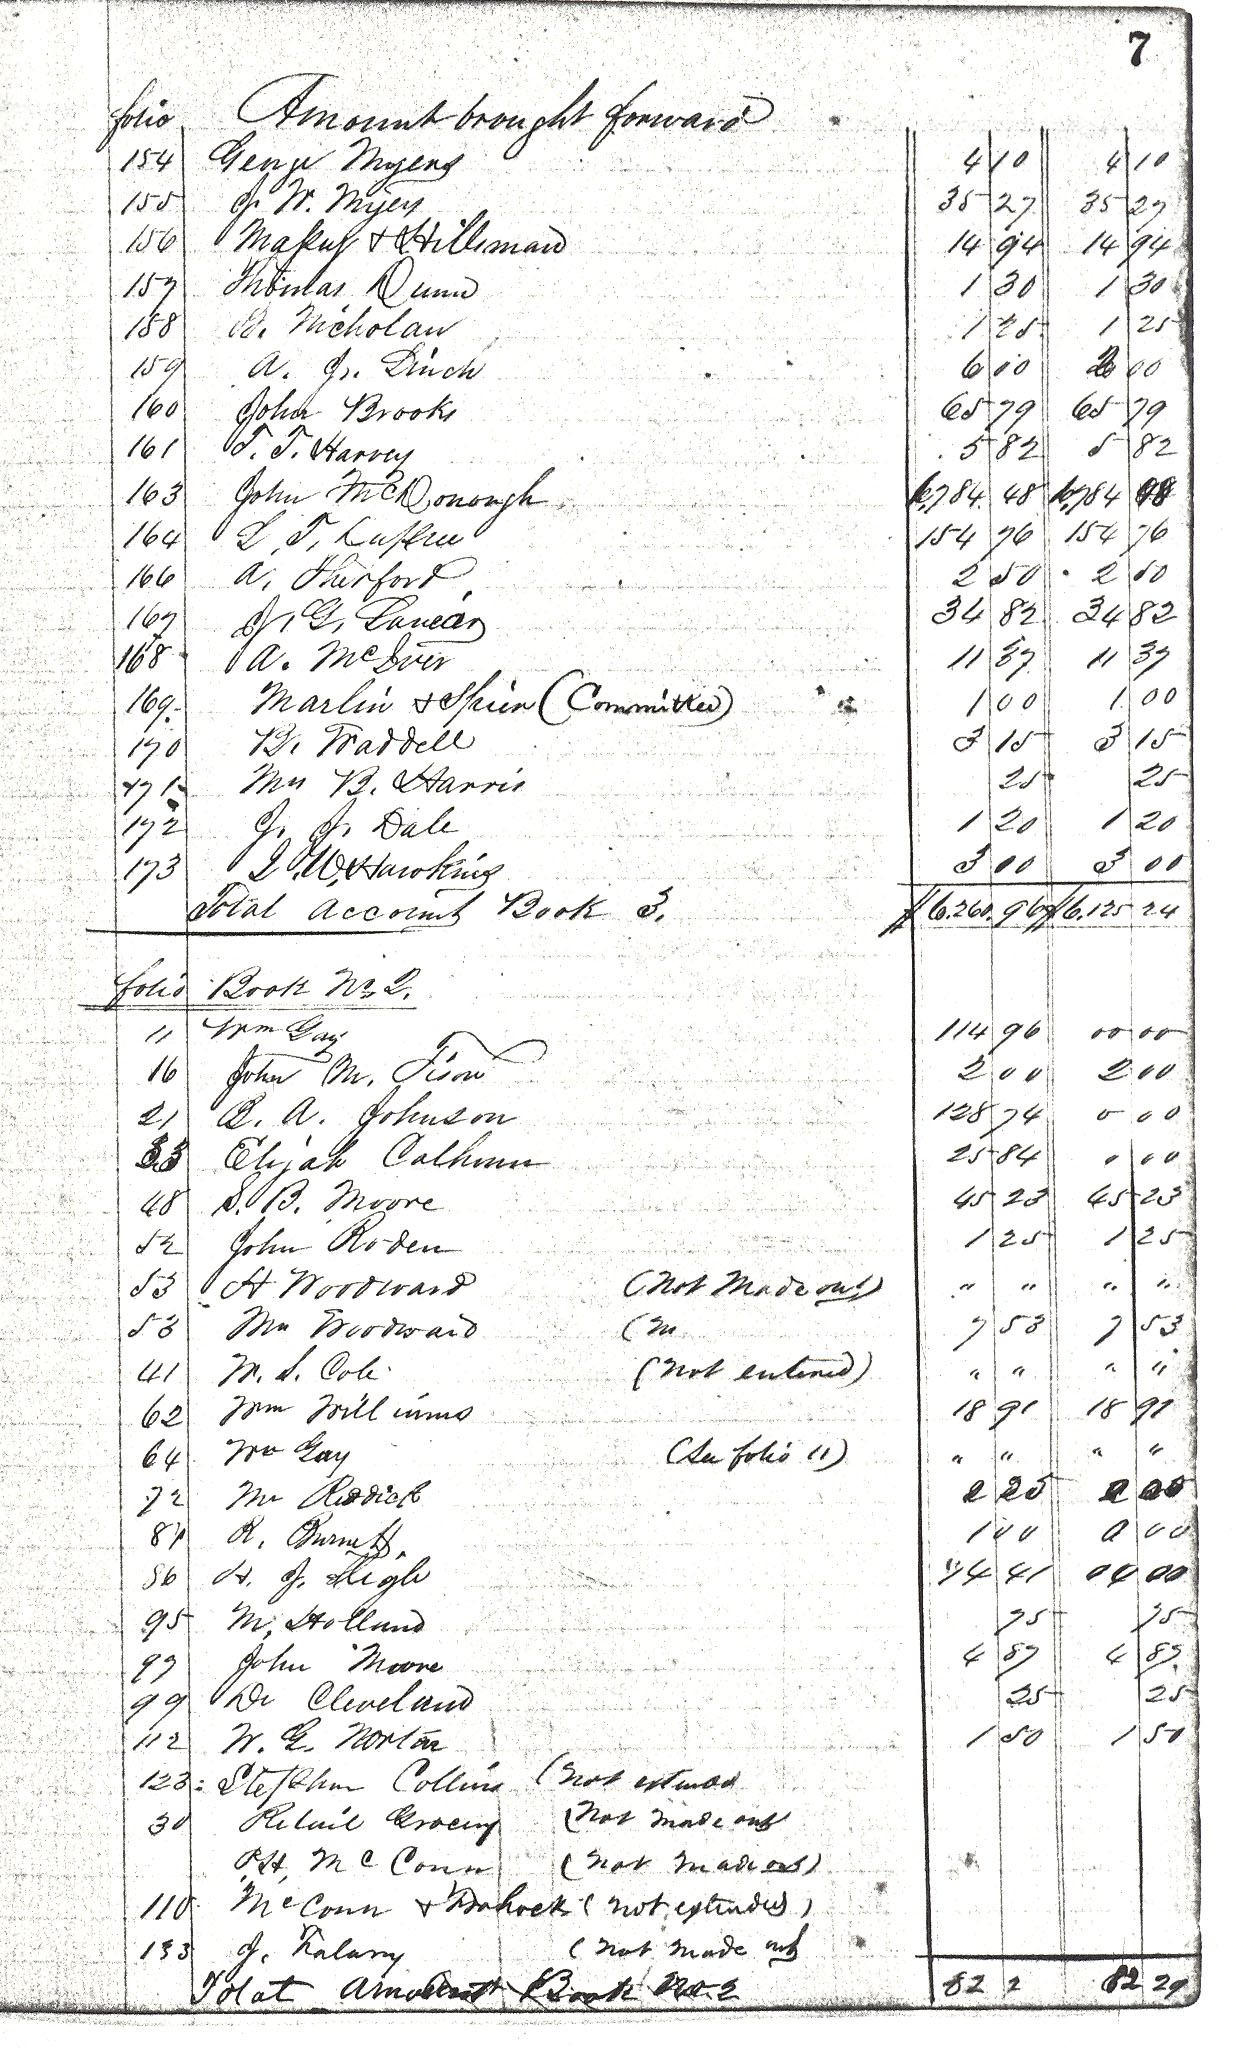 7
folio Amount brought forward
154 George Myers 4 10 4 10
155 J. W. Myers 35 27 35 27
156 & Hillsman 14 94 14 94
157 Thomas Dunn 1 30 1 30
158 Nicholau 1 25 1 25
159 A. J. 6 00 00
160 John Brooks 65 79 65 79
161 T. T. Harvey 5 82 5 82
163 John McDonough 784 48 784
164 L. T. 154 76 154 76
166 A. Thirford 2 50 2 50
167 J. G. 34 82 34 82
168 A. McIver 11 37 11 37
169 Marlin & Spier (Committee) 1 00 1 00
170 B. Waddell 3 15 3 15
171 Mrs B. Harris 25 25
172 J. J. Dale 1 20 1 20
173 L. W. Hawkins 3 00 3 00
Total Account Book 3. $6.260.96 $6.125 24
folio Book No 2.
11 Wm Gay 114 96 00 00
16 John M. Tison 2 00 2 00
21 R. A. Johnson 128 74 0 00
33 Elijah Calhoun 25 84 0 00
48 S. B. Moore 45 23 45 23
52 John Roden 1 25 1 25
53 H Woodward (Not Made out) " " " "
53 Mrs Woodward (M 7 53 7 53
41 W. S. Cole (Not entered) " " " "
62 Wm Williams 18 91 18 91
64 Wm Gay (See folio 11) " " " "
72 Mr Reddick 2 25
81 R. Burnett 1 00 0 00
86 H. J. High 74 41 00
95 M. Holland 75 75
97 John Moore 4 87 4 87
99 Dr Cleveland 25 25
112 W. G. Norton 1 50 1 50
123 Stephen Collins (Not
30 Retail Grocery (Not made out
P.H. McConn (Not made out)
110 McConn & (Not extended)
133 J. (Not made out
Total Amount Book No. 2 82 2 82 29